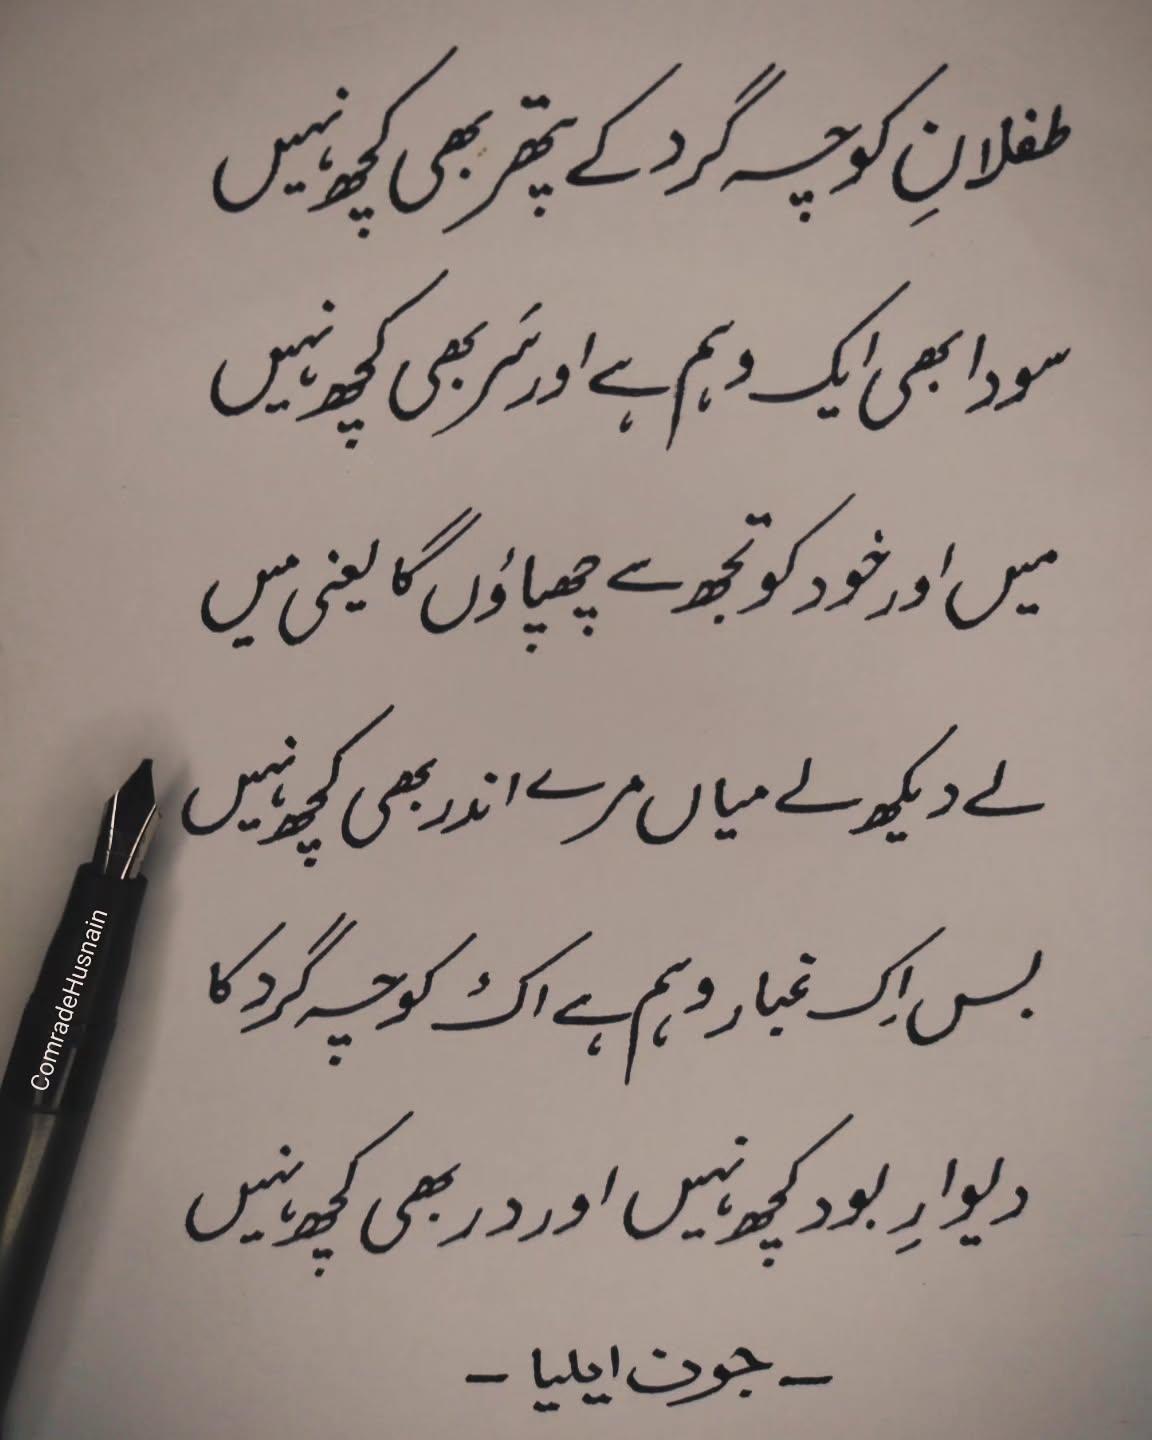 طفلانِ کوچہ گرد کے پتھر بھی کچھ نہیں
سودا بھی ایک وہم ہے اور سَر بھی کچھ نہیں
میں اور خود کو تجھ سے چھپاؤں گا یعنی میں
لے دیکھ لے میاں مرے اندر بھی کچھ نہیں
بس اِک غبار وہم ہے اک کوچہ گرد کا
دیوارِ بود کچھ نہیں اور در بھی کچھ نہیں
- جون ایلیا -
ComradeHusnain